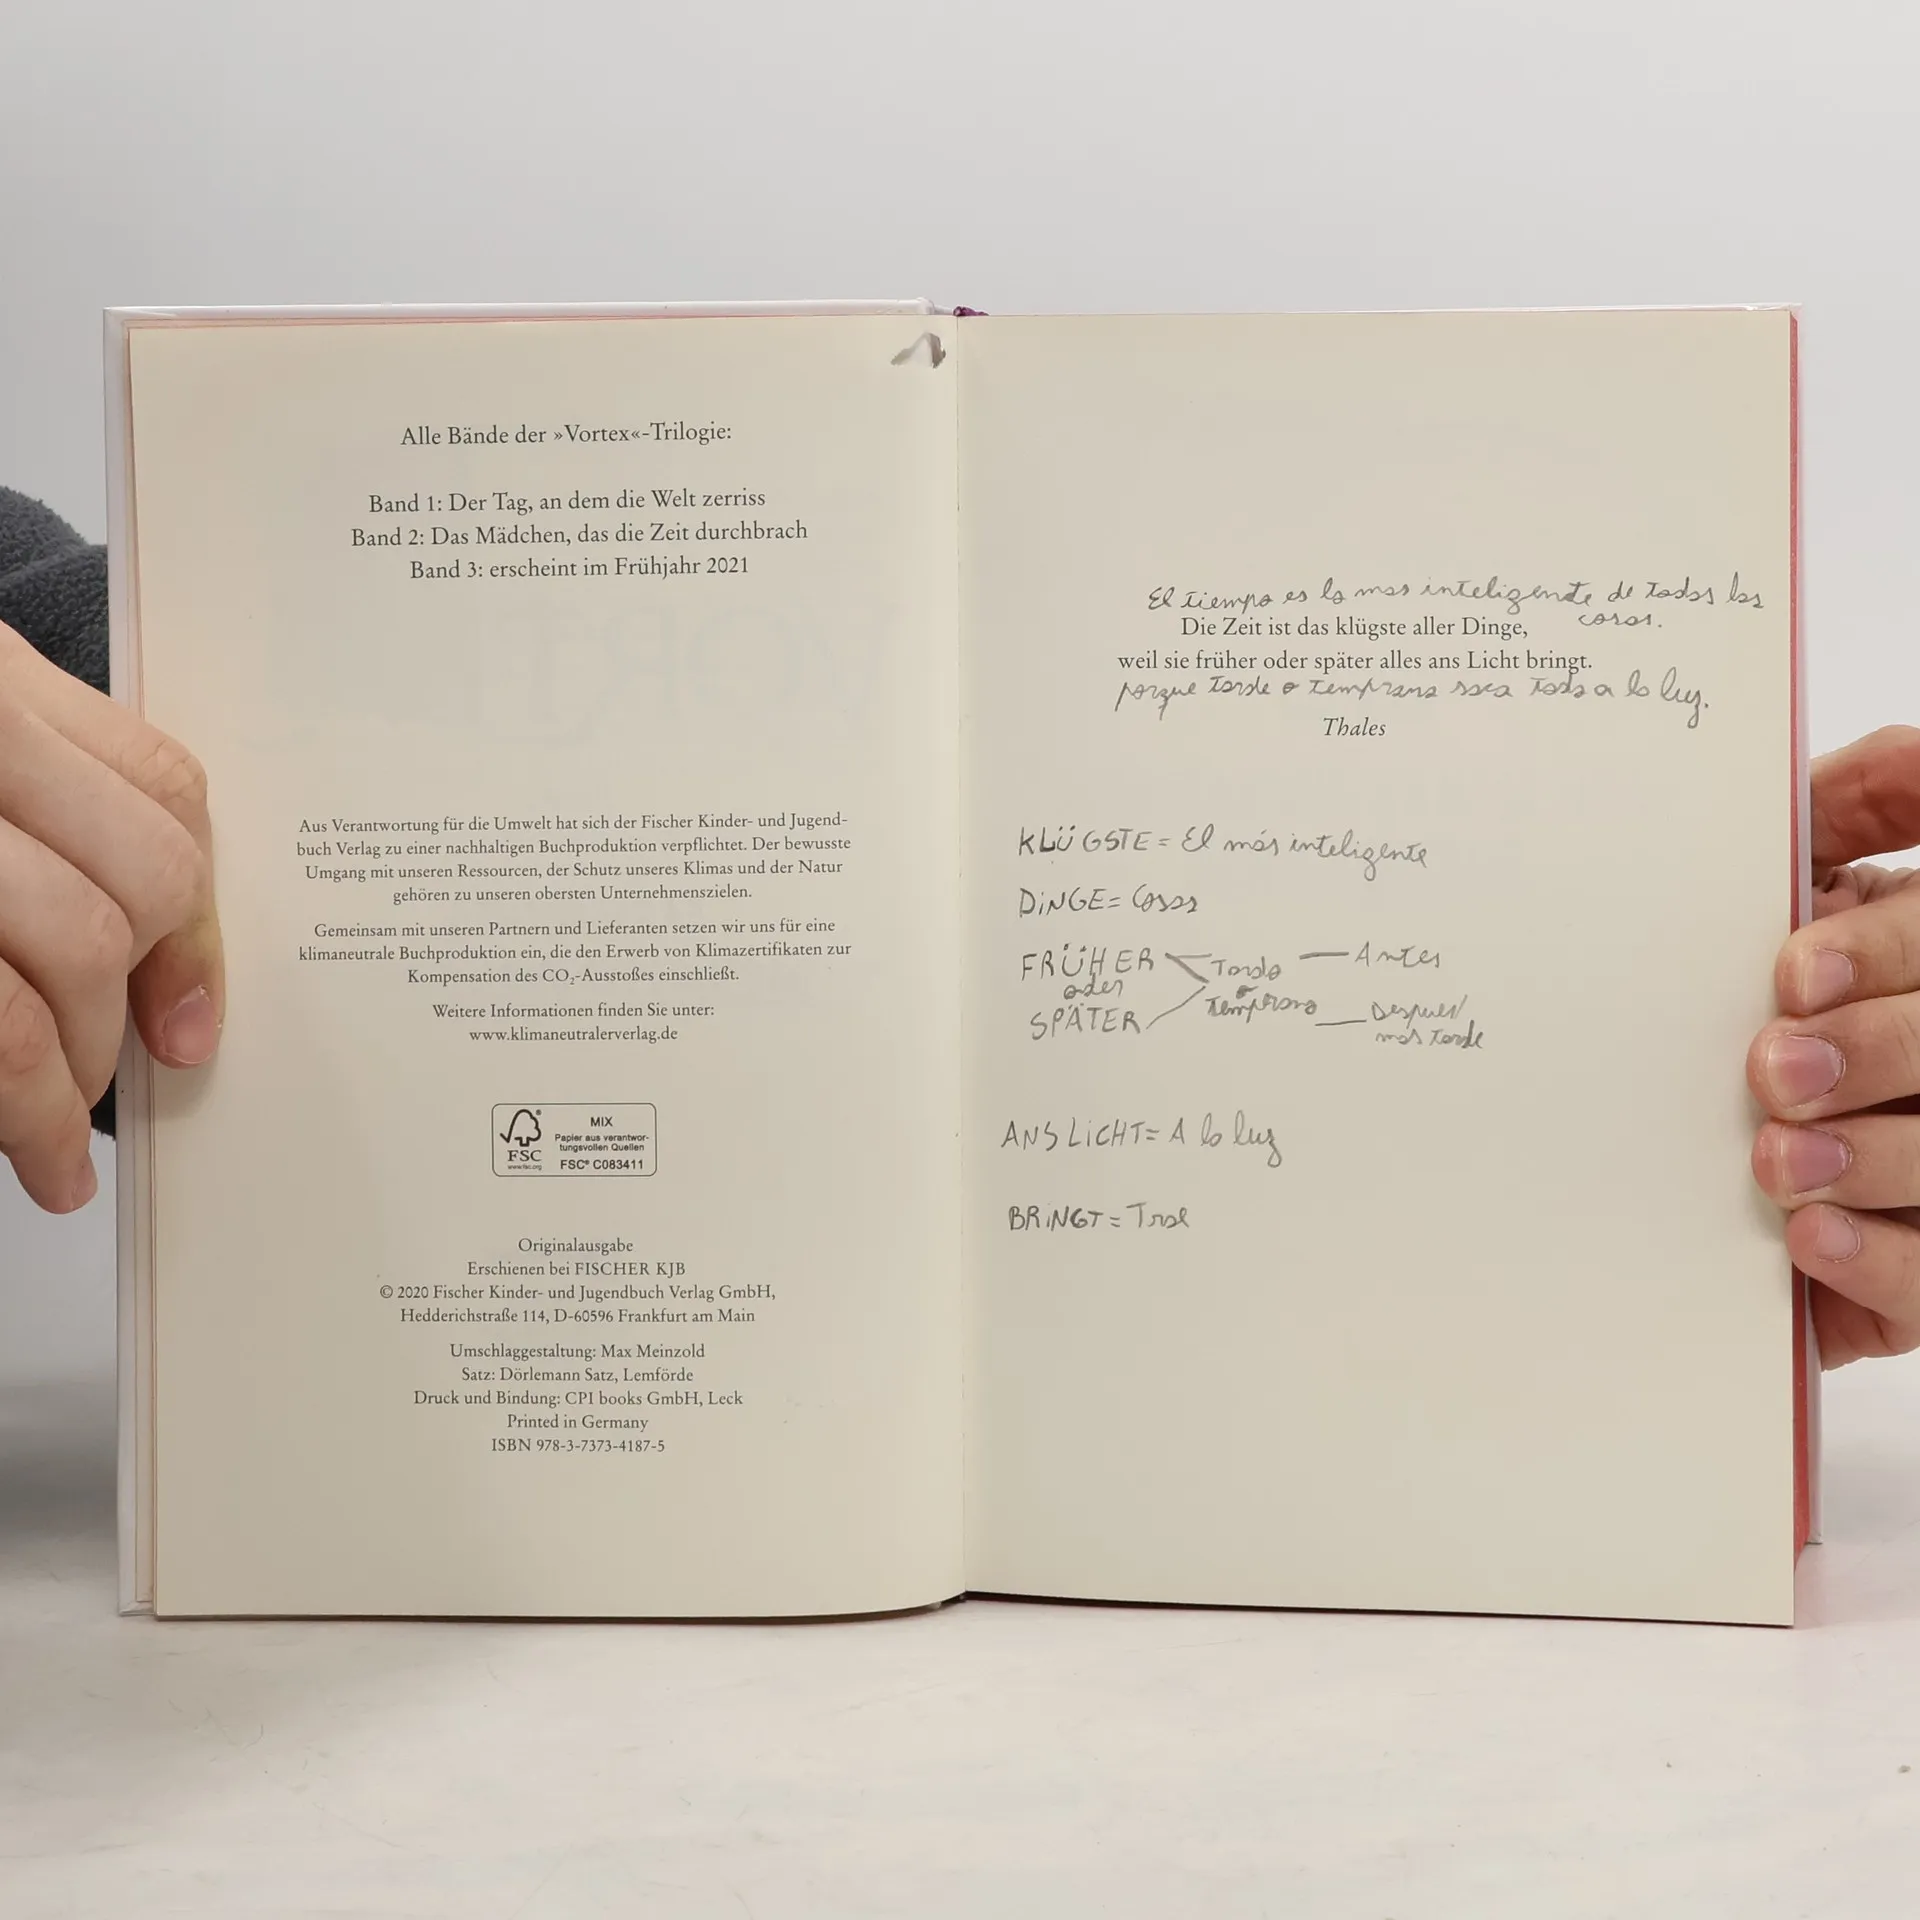 Alle Bände der »Vortex«-Trilogie:
Band 1: Der Tag, an dem die Welt zerriss
Band 2: Das Mädchen, das die Zeit durchbrach
Band 3: erscheint im Frühjahr 2021
Aus Verantwortung für die Umwelt hat sich der Fischer Kinder- und Jugend-
buch Verlag zu einer nachhaltigen Buchproduktion verpflichtet. Der bewusste
Umgang mit unseren Ressourcen, der Schutz unseres Klimas und der Natur
gehören zu unseren obersten Unternehmenszielen.
Gemeinsam mit unseren Partnern und Lieferanten setzen wir uns für eine
klimaneutrale Buchproduktion ein, die den Erwerb von Klimazertifikaten zur
Kompensation des CO₂-Ausstoßes einschließt.
Weitere Informationen finden Sie unter:
www.klimaneutralerverlag.de
FSC
www.fsc.org
MIX
Papier aus verantwor-
tungsvollen Quellen
FSC® C083411
Originalausgabe
Erschienen bei FISCHER KJB
© 2020 Fischer Kinder- und Jugendbuch Verlag GmbH,
Hedderichstraße 114, D-60596 Frankfurt am Main
Umschlaggestaltung: Max Meinzold
Satz: Dörlemann Satz, Lemförde
Druck und Bindung: CPI books GmbH, Leck
Printed in Germany
ISBN 978-3-7373-4187-5
El tiempo es lo mas inteligente de todas las
cosas.
Die Zeit ist das klügste aller Dinge,
weil sie früher oder später alles ans Licht bringt.
porque tarde o temprano saca todo a la luz.
Thales
KLÜGSTE = El más inteligente
DiNGE = Cosas
FRÜHER Tarde — Antes
oder o
SPÄTER temprano — Despues/
mas tarde
ANS LiCHT = A la luz
BRiNGT = Trae